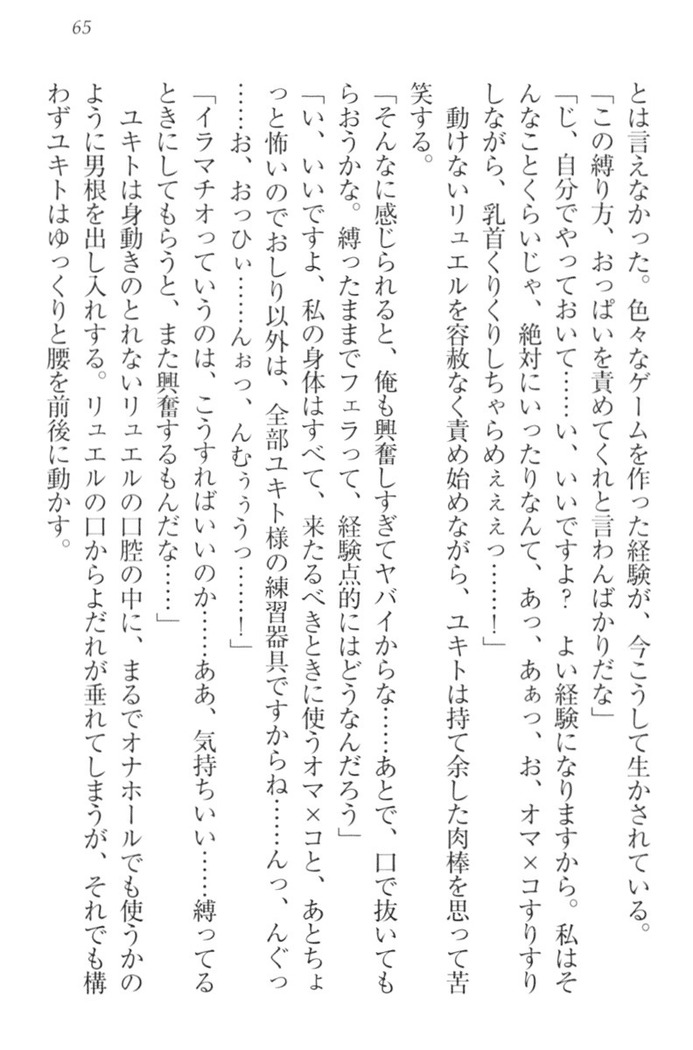 65
とは言えなかった。色々なゲームを作った経験が、今こうして生かされている。
「この縛り方、おっぱいを責めてくれと言わんばかりだな」
「じ、自分でやっておいて……い、いいですよ？　よい経験になりますから。私はそ
んなことくらいじゃ、絶対にいったりなんて、あっ、あぁっ、お、オマ×コすりすり
しながら、乳首くりくりしちゃらめぇぇぇっ……！」
　動けないリュエルを容赦なく責め始めながら、ユキトは持て余した肉棒を思って苦
笑する。
「そんなに感じられると、俺も興奮しすぎてヤバイからな……あとで、口で抜いても
らおうかな。縛ったままでフェラって、経験点的にはどうなんだろう」
「い、いいですよ、私の身体はすべて、来たるべきときに使うオマ×コと、あとちょ
っと怖いのでおしり以外は、全部ユキト様の練習器具ですからね……んっ、んぐっ
……お、おっひぃ……んぉっ、んむぅぅうっ……！」
「イラマチオっていうのは、こうすればいいのか……ああ、気持ちいい……縛ってる
ときにしてもらうと、また興奮するもんだな……」
　ユキトは身動きのとれないリュエルの口腔の中に、まるでオナホールでも使うかの
ように男根を出し入れする。リュエルの口からよだれが垂れてしまうが、それでも構
わずユキトはゆっくりと腰を前後に動かす。